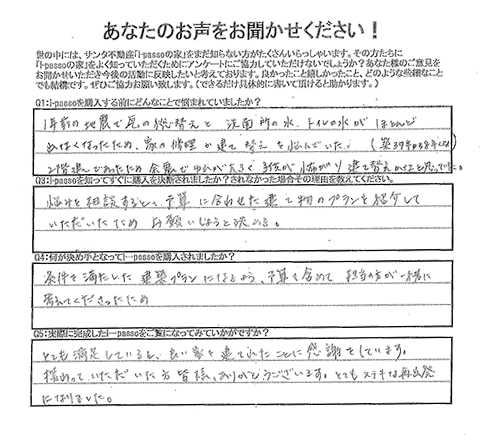 あなたのお声をお聞かせください！
世の中には、サンタ不動産「i-passoの家」をまだ知らない方がたくさんいらっしゃいます。その方たちに
「i-passoの家」をよく知っていただくためにアンケートにご協力していただけないでしょうか？あなた様のご意見を
お聞かせいただき今後の活動に反映したいと考えております。良かったこと嬉しかったこと、どのような些細なこと
でも結構です。ぜひご協力お願い致します。（できるだけ具体的に書いて頂けると助かります。）
Q1:i-passoを購入する前にどんなことで悩まれていましたか？
1年前の地震で瓦の吹替えと洗面所の水、トイレの水がほとんど
出なくなったため、家の修理か建て替えを悩んでいた。
2階建てであったため余震でゆれが大きく 建て替えかなと思っていた。
Q3:i-passoを知ってすぐに購入を決断されましたか？されなかった場合その理由を教えてください。
悩みを相談すると、予算に合わせた建て物のプランを紹介して
いただいたためお願いしようと決める。
Q4:何が決め手となってi-passoを購入されましたか？
条件を満たした建築プランになるよう、予算も含めて担当の方が一緒に
考えてくださったため
Q5:実際に完成したi-passoをご覧になってみていかがですか？
とても満足していると、良い家を建てれたことに感謝をしています。
携わっていただいた方皆様、ありがとうございます。とてもステキな再出発
になりました。